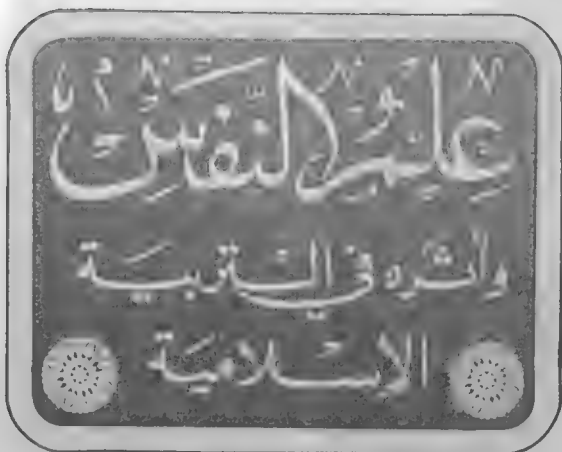 علم النفس
وأثره في التربية
الإسلامية